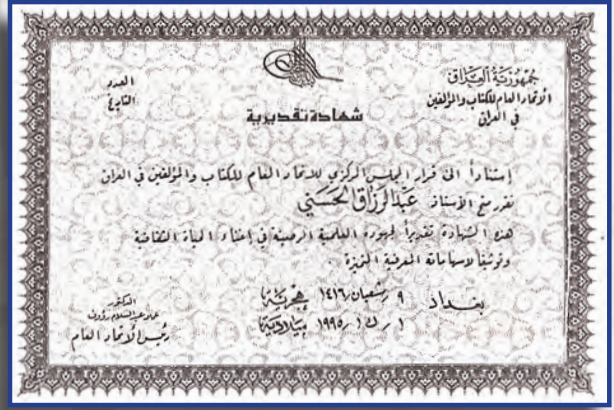 جمهورية العراق
الاتحاد العام للكتاب والمؤلفين
في العراق
العدد
التاريخ
شهادة تقديرية
إستناداً الى قرار المجلس المركزي للاتحاد العام للكتاب والمؤلفين في العراق
تقرر منح الأستاذ عبدالرزاق الحسني
هذه الشهادة تقديراً لجهوده العلمية الرصينة في إغناء الحياة الثقافية
وتوثيقاً لاسهاماته المعرفية المتميزة .
بغداد ٩ / شعبان / ١٤١٦ هجرية
١ / ك١ / ١٩٩٥ ميلادية
الدكتور
عماد عبدالسلام رؤوف
رئيس الأتحاد العام